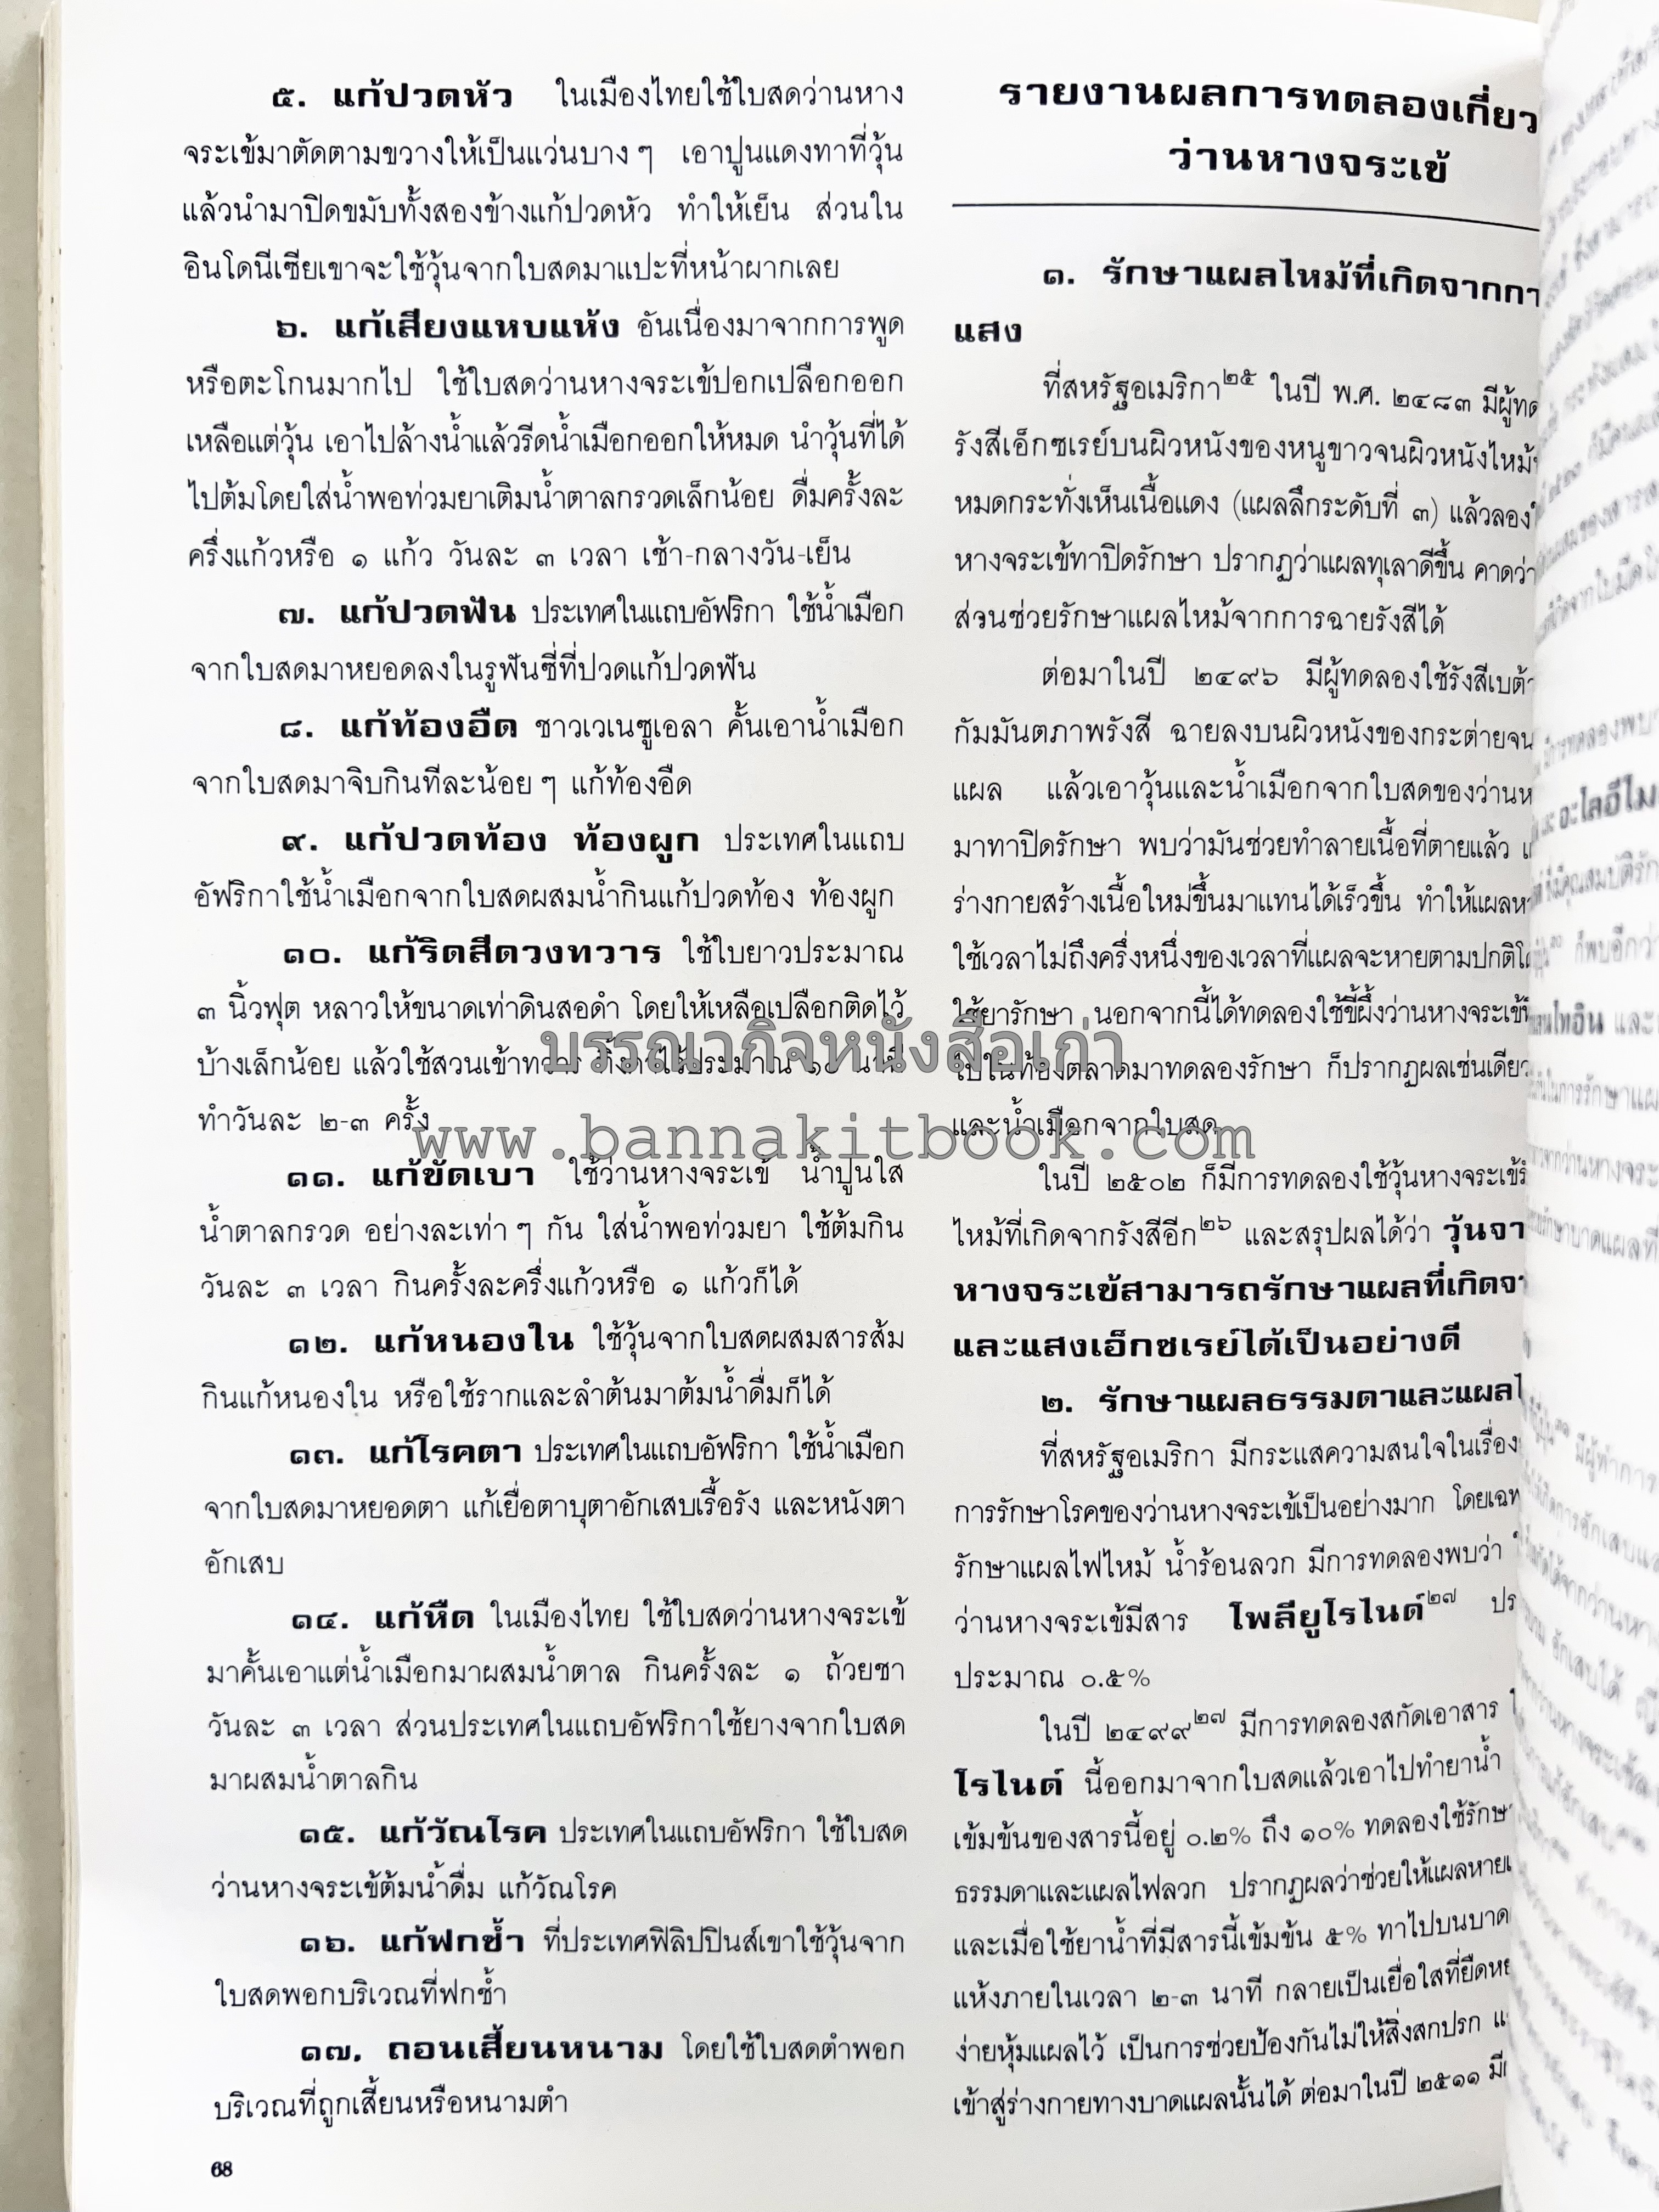 ๕. แก้ปวดหัว ในเมืองไทยใช้ใบสดว่านหาง
จระเข้มาตัดตามขวางให้เป็นแว่นบาง ๆ เอาปูนแดงทาที่วุ้น
แล้วนำมาปิดขมับทั้งสองข้างแก้ปวดหัว ทำให้เย็น ส่วนใน
อินโดนีเซียเขาจะใช้วุ้นจากใบสดมาแปะที่หน้าผากเลย
๖. แก้เสียงแหบแห้ง อันเนื่องมาจากการพูด
หรือตะโกนมากไป ใช้ใบสดว่านหางจระเข้ปอกเปลือกออก
เหลือแต่วุ้น เอาไปล้างน้ำแล้วรีดน้ำเมือกออกให้หมด นำวุ้นที่ได้
ไปต้มโดยใส่น้ำพอท่วมยาเติมน้ำตาลกรวดเล็กน้อย ดื่มครั้งละ
ครึ่งแก้วหรือ ๑ แก้ว วันละ ๓ เวลา เช้า-กลางวัน-เย็น
๗. แก้ปวดฟัน ประเทศในแถบอัฟริกา ใช้น้ำเมือก
จากใบสดมาหยอดลงในรูฟันซี่ที่ปวดแก้ปวดฟัน
๘. แก้ท้องอืด ชาวเวเนซูเอลา คั้นเอาน้ำเมือก
จากใบสดมาจิบกินทีละน้อย ๆ แก้ท้องอืด
๙. แก้ปวดท้อง ท้องผูก ประเทศในแถบ
อัฟริกาใช้น้ำเมือกจากใบสดผสมน้ำกินแก้ปวดท้อง ท้องผูก
๑๐. แก้ริดสีดวงทวาร ใช้ใบยาวประมาณ
๓ นิ้วฟุต หลาวให้ขนาดเท่าดินสอดำ โดยให้เหลือเปลือกติดไว้
บ้างเล็กน้อย แล้วใช้สวนเข้าทวาร
ทำวันละ ๒-๓ ครั้ง
๑๑. แก้ขัดเบา ใช้ว่านหางจระเข้ น้ำปูนใส
น้ำตาลกรวด อย่างละเท่า ๆ กัน ใส่น้ำพอท่วมยา ใช้ต้มกิน
วันละ ๓ เวลา กินครั้งละครึ่งแก้วหรือ ๑ แก้วก็ได้
๑๒. แก้หนองใน ใช้วุ้นจากใบสดผสมสารส้ม
กินแก้หนองใน หรือใช้รากและลำต้นมาต้มน้ำดื่มก็ได้
๑๓. แก้โรคตา ประเทศในแถบอัฟริกา ใช้น้ำเมือก
จากใบสดมาหยอดตา แก้เยื่อตาบุตาอักเสบเรื้อรัง และหนังตา
อักเสบ
๑๔. แก้หืด ในเมืองไทย ใช้ใบสดว่านหางจระเข้
มาคั้นเอาแต่น้ำเมือกมาผสมน้ำตาล กินครั้งละ ๑ ถ้วยชา
วันละ ๓ เวลา ส่วนประเทศในแถบอัฟริกาใช้ยางจากใบสด
มาผสมน้ำตาลกิน
๑๕. แก้วัณโรค ประเทศในแถบอัฟริกา ใช้ใบสด
ว่านหางจระเข้ต้มน้ำดื่ม แก้วัณโรค
๑๖. แก้ฟกช้ำ ที่ประเทศฟิลิปปินส์เขาใช้วุ้นจาก
ใบสดพอกบริเวณที่ฟกช้ำ
๑๗. ถอนเสี้ยนหนาม โดยใช้ใบสดตำพอก
บริเวณที่ถูกเสี้ยนหรือหนามตำ
68
รายงานผลการทดลองเกี่ยว
ว่านหางจระเข้
๑. รักษาแผลไหม้ที่เกิดจากกา
แสง
ที่สหรัฐอเมริกา๒๕ ในปี พ.ศ. ๒๔๘๓ มีผู้ทด
รังสีเอ็กซเรย์บนผิวหนังของหนูขาวจนผิวหนังไหม้
หมดกระทั่งเห็นเนื้อแดง (แผลลึกระดับที่ ๓) แล้วลอง
หางจระเข้ทาปิดรักษา ปรากฏว่าแผลทุเลาดีขึ้น คาดว่า
ส่วนช่วยรักษาแผลไหม้จากการฉายรังสีได้
ต่อมาในปี ๒๔๙๖ มีผู้ทดลองใช้รังสีเบต้า
กัมมันตภาพรังสี ฉายลงบนผิวหนังของกระต่ายจน
แผล แล้วเอาวุ้นและน้ำเมือกจากใบสดของว่านห
มาทาปิดรักษา พบว่ามันช่วยทำลายเนื้อที่ตายแล้ว
ร่างกายสร้างเนื้อใหม่ขึ้นมาแทนได้เร็วขึ้น ทำให้แผลห
ใช้เวลาไม่ถึงครึ่งหนึ่งของเวลาที่แผลจะหายตามปกติโด
ใช้ยารักษา นอกจากนี้ได้ทดลองใช้ขี้ผึ้งว่านหางจระเข้
ไปในท้องตลาดมาทดลองรักษา ก็ปรากฏผลเช่นเดียว
และน้ำเมือกจากใบสด
ในปี ๒๕๐๒ ก็มีการทดลองใช้วุ้นหางจระเข้
ไหม้ที่เกิดจากรังสีอีก๒๖ และสรุปผลได้ว่า วุ้นจา
หางจระเข้สามารถรักษาแผลที่เกิดจา
และแสงเอ็กซเรย์ได้เป็นอย่างดี
๒. รักษาแผลธรรมดาและแผลไ
ที่สหรัฐอเมริกา มีกระแสความสนใจในเรื่อง
การรักษาโรคของว่านหางจระเข้เป็นอย่างมาก โดยเฉพ
รักษาแผลไฟไหม้ น้ำร้อนลวก มีการทดลองพบว่า
ว่านหางจระเข้มีสาร โพลียูโรไนด์๒๗ ปร
ประมาณ ๐.๕%
ในปี ๒๔๙๙๒๗ มีการทดลองสกัดเอาสาร
โรไนด์ นี้ออกมาจากใบสดแล้วเอาไปทำยาน้ำ
เข้มข้นของสารนี้อยู่ ๐.๒% ถึง ๑๐% ทดลองใช้รักษ
ธรรมดาและแผลไฟลวก ปรากฏผลว่าช่วยให้แผลหาย
และเมื่อใช้ยาน้ำที่มีสารนี้เข้มข้น ๕% ทาไปบนบาด
แห้งภายในเวลา ๒-๓ นาที กลายเป็นเยื่อใสที่ยืดหย
ง่ายหุ้มแผลไว้ เป็นการช่วยป้องกันไม่ให้สิ่งสกปรก
เข้าสู่ร่างกายทางบาดแผลนั้นได้ ต่อมาในปี ๒๕๑๑ มี
บรรณากิจหนังสือเก่า
www.bannakitbook.com